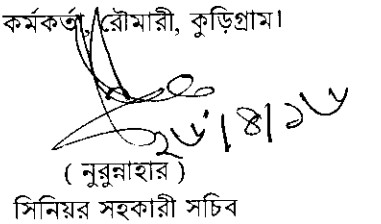 কর্মকর্তা, রৌমারী, কুড়িগ্রাম।
২৮/৪/১৮
( নুরুন্নাহার )
সিনিয়র সহকারী সচিব